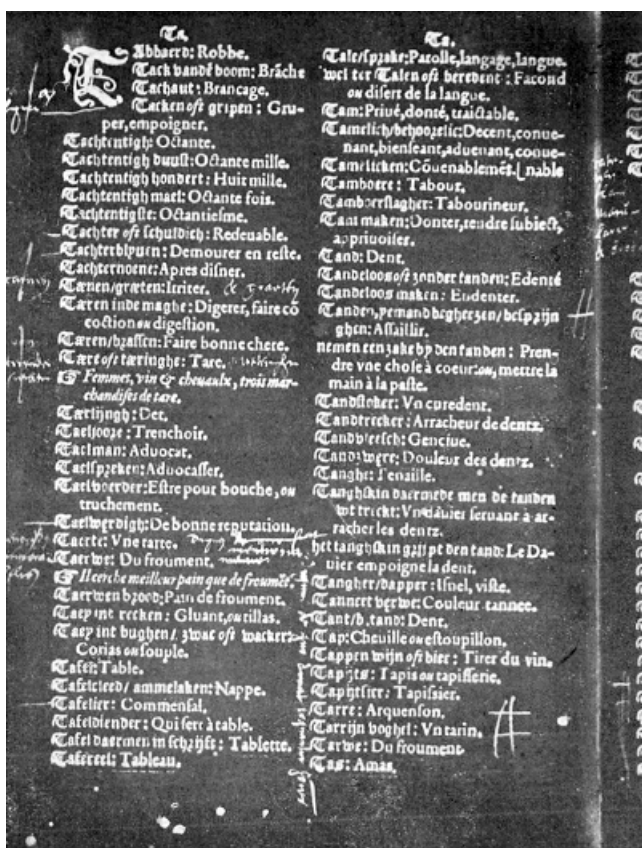 Ta.
TAbbaerd: Robbe.
Tack vandē boom: Brāche
Tachaut: Brancage.
Tacken oft gripen: Gru-
per, empoigner.
Tachtentigh: Octante.
Tachtentigh duust: Octante mille.
Tachtentigh hondert: Huit mille.
Tachtentigh mael: Octante fois.
Tachtentigste: Octantiesme.
Tachter oft schuldich: Redeuable.
Tachterblyuen: Demourer en reste.
Tachternoene: Apres disner.
Tænen/græten: Irriter.
Tæren inde maghe: Digerer, faire cō
coction ou digestion.
Tæren/brassen: Faire bonne chere.
Tære oft tæringhe: Tare.
☞ Femmes, vin & cheuaulx, trois mar-
chandises de tare.
Tærlijngh: Det.
Taeljoore: Trenchoir.
Taelman: Aduocat.
Taelspreken: Aduocasser.
Taelvoerder: Estre pour bouche, ou
truchement.
Taelwerdigh: De bonne reputation.
Taerte: Vne tarte.
Taerwe: Du froument.
☞ Il cerche meilleur pain que de froumēt.
Taerwen brood: Pain de froument.
Taey int recken: Gluant, ou tillas.
Taey int bughen/ zwac oft wacker:
Corias ou souple.
Tafel: Table.
Tafelcleed/ ammelaken: Nappe.
Tafelier: Commensal.
Tafeldiender: Qui sert à table.
Tafel daermen in schrijft: Tablette.
Tafereel: Tableau.
Ta.
Tale/sprake: Parolle, langage, langue.
wel ter Talen oft beredent: Facond
ou disert de la langue.
Tam: Priué, donté, traictable.
Tamelich/behoorelic: Decent, conue-
nant, bienseant, aduenant, conue-
Tamelicken: Cōuenablemēt. [nable
Tamboere: Tabour.
Tamboerslagher: Tabourineur.
Tam maken: Donter, rendre subiect,
appriuoiser.
Tand: Dent.
Tandeloos oft zonder tanden: Edenté
Tandeloos maken: Endenter.
Tanden, yemand begherzen/ bespzijn
ghen: Assaillir.
nemen een zake by den tanden: Pren-
dre vne chose à coeur: ou, mettre la
main à la paste.
Tandstoker: Vn curedent.
Tandtrecker: Arracheur de dentz.
Tandvleesch: Genciue.
Tandzwere: Douleur des dentz.
Tanghe: Tenaille.
Tanghskin daermede men de tanden
wt trickt: Vn dauier seruant à ar-
racher les dentz.
het tanghskin grijpt den tand: Le Da-
uier empoigne la dent.
Tangher/dapper: Isnel, viste.
Tanneet verwe: Couleur tannee.
Tant/b, tand: Dent.
Tap: Cheuille ou estoupillon.
Tappen wijn oft bier: Tirer du vin.
Tapijts: Tapis ou tapisserie.
Tapijtsier: Tapissier.
Tarre: Arquenson.
Tarrijn voghel: Vn tarin.
Tarwe: Du froument.
Tas: Amas.